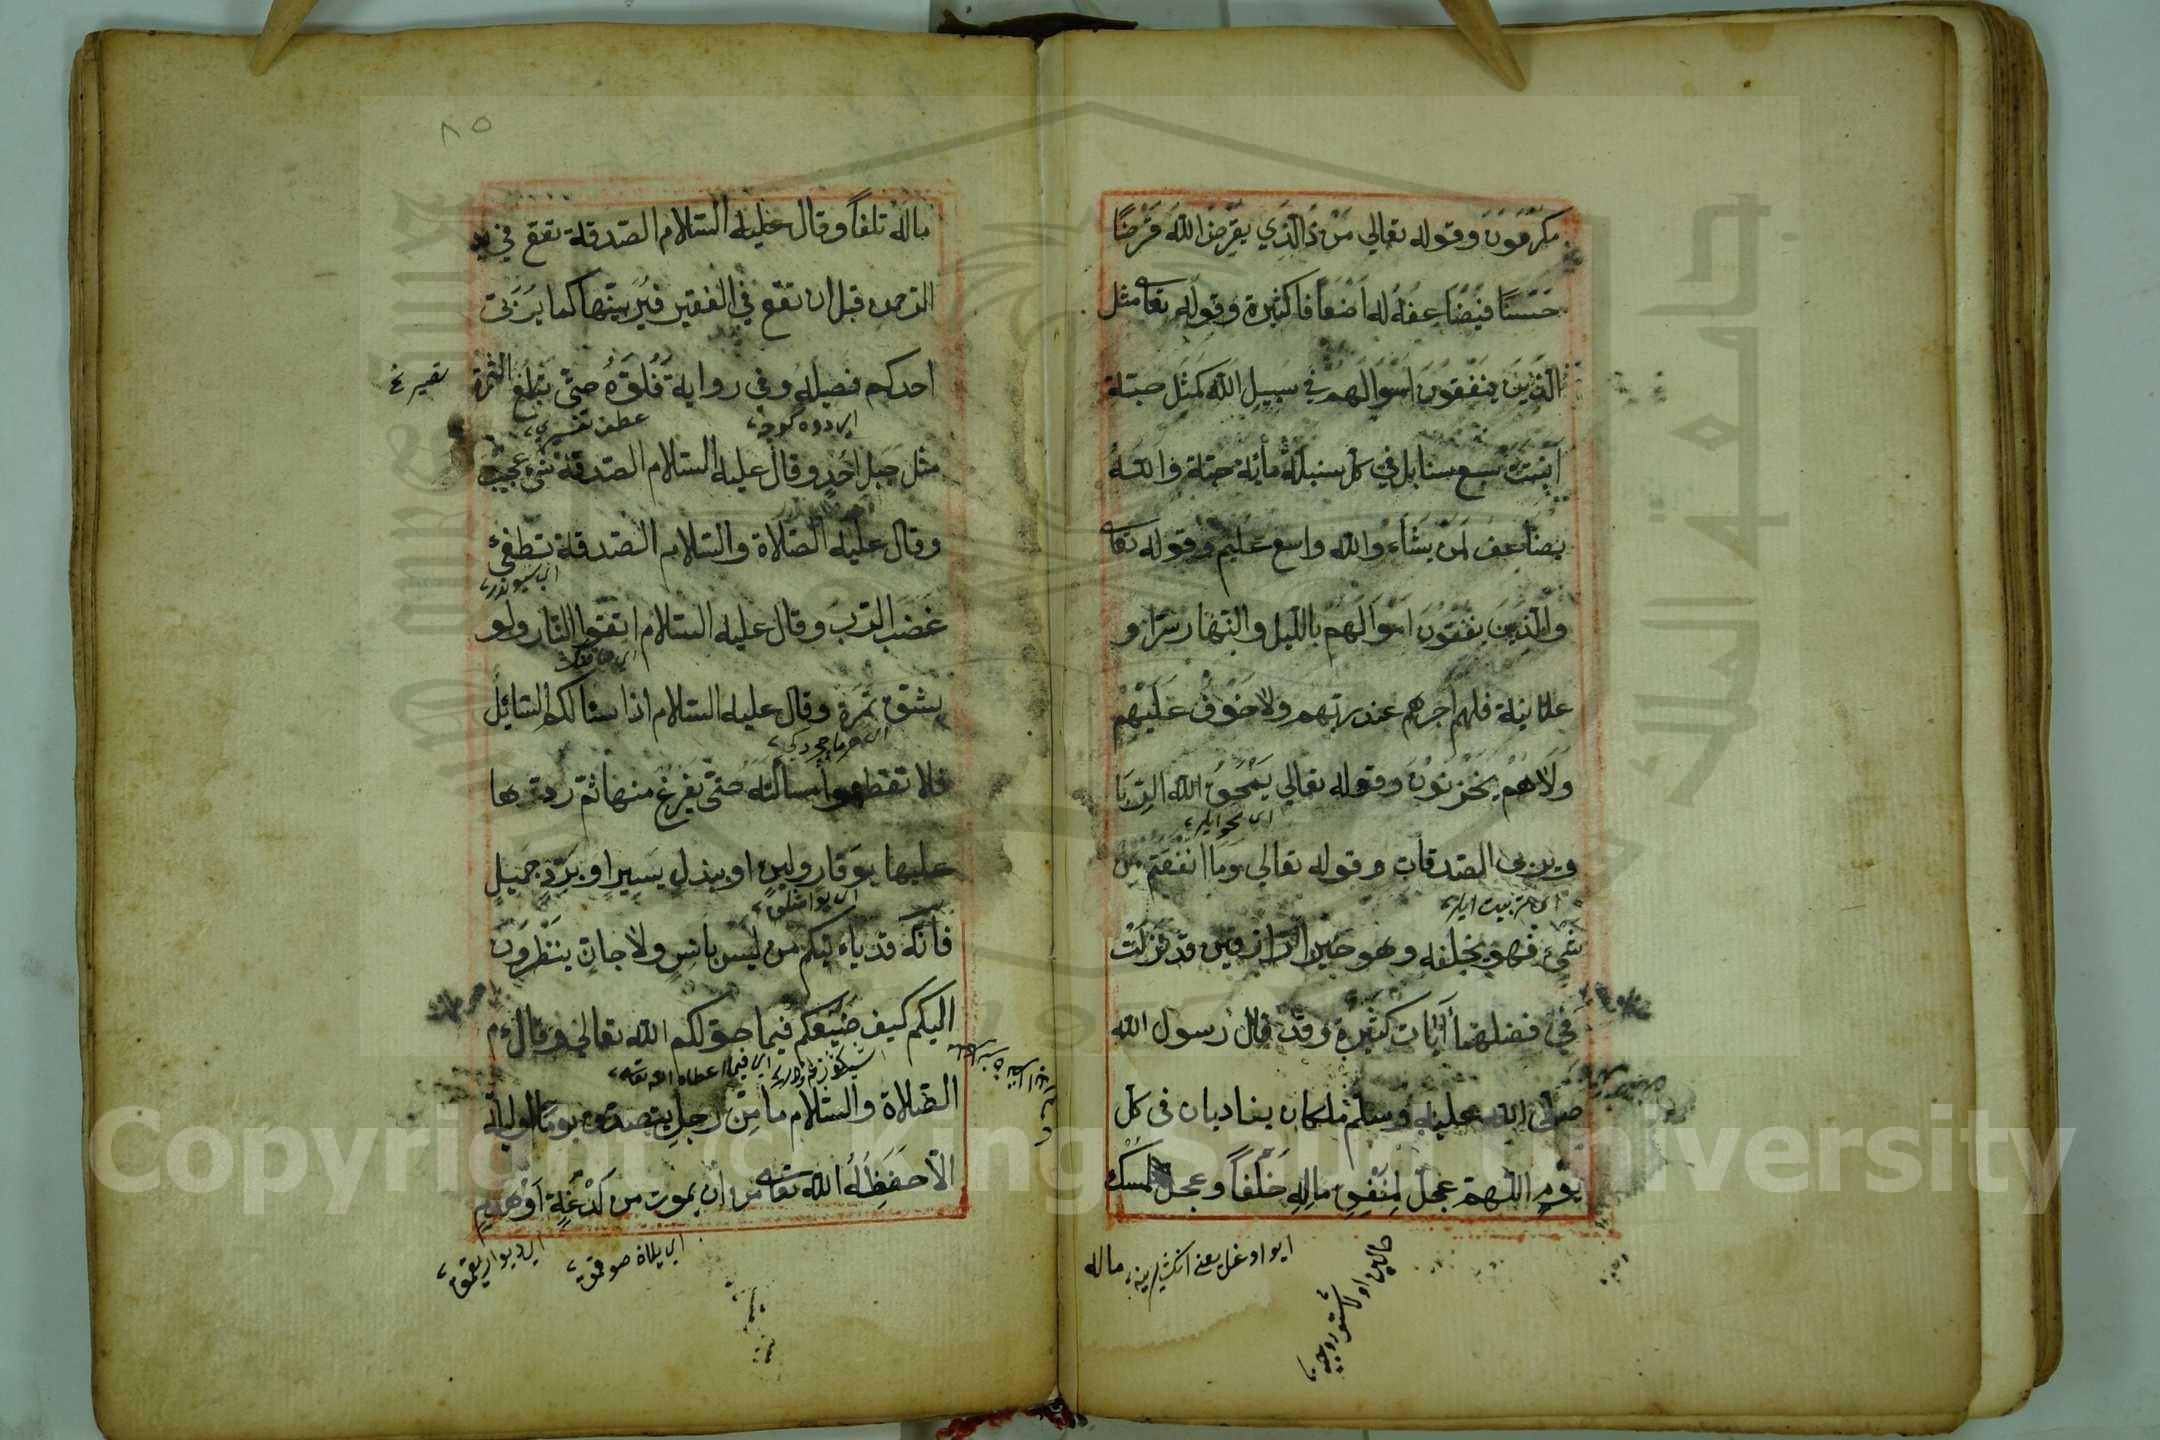 مكرمون وقوله تعالي من ذا الذي يقرض الله قرضا
حسنا فيضاعفه له اضعافا كثيرة وقوله تعا مثل
الذين ينفقون اموالهم في سبيل الله كمثل حبة
انبتت سبع سنابل في كل سنبلة مأية حبة والله
يضاعف لمن يشاء والله واسع عليم وقوله تعا
والذين ينفقون اموالهم بالليل والنهار سرا و
علانية فلهم اجرهم عند ربهم ولا خوف عليهم
ولا هم يحزنون وقوله تعالي يمحق الله الربا
اي محو ايلر
ويربى الصدقات وقوله تعالي وما انفقتم من
اي تربيت ايلر
شيء فهو يخلفه وهو خير الرازقين قد نزلت
في فضلهما آيات كثيرة وقد قال رسول الله
صلى الله عليه وسلم ملكان يناديان في كل
يوم اللهم عجل لمنفق ماله خلفا وعجل لممسك
ماله
٨٥
ماله تلفا وقال عليه السلام الصدقة تقع في يد
الرحمن قبل ان تقع في الفقير فيربيها كما يربى
احدكم فصيله وفي رواية فلوه حتى تبلغ التمرة
اي دوه كوجه
عطف تفسيري
مثل جبل احد وقال عليه السلام الصدقة شيء عجيب
وقال عليه الصلاة والسلام الصدقة تطفئ
اي سيوندر
غضب الرب وقال عليه السلام اتقوا النار ولو
بشق تمرة وقال عليه السلام اذا سئالكم السائل
فلا تقطعوا مسألته حتى يفرغ منها ثم ردها
عليها بوقار ولين او ببذل يسير او برد جميل
فانه قد يأتيكم من ليس بانس ولا جان ينظرون
اليكم كيف صنيعكم فيما حولكم الله تعالي وقال
اي فيما اعطاه الله تعا
الصلاة والسلام ما من رجل يتصدق يوما او ليلة
الا حفظه الله تعا من ان يموت من لدغة او هدم
اي ييلان صوقمق
اي ديوار يقمق